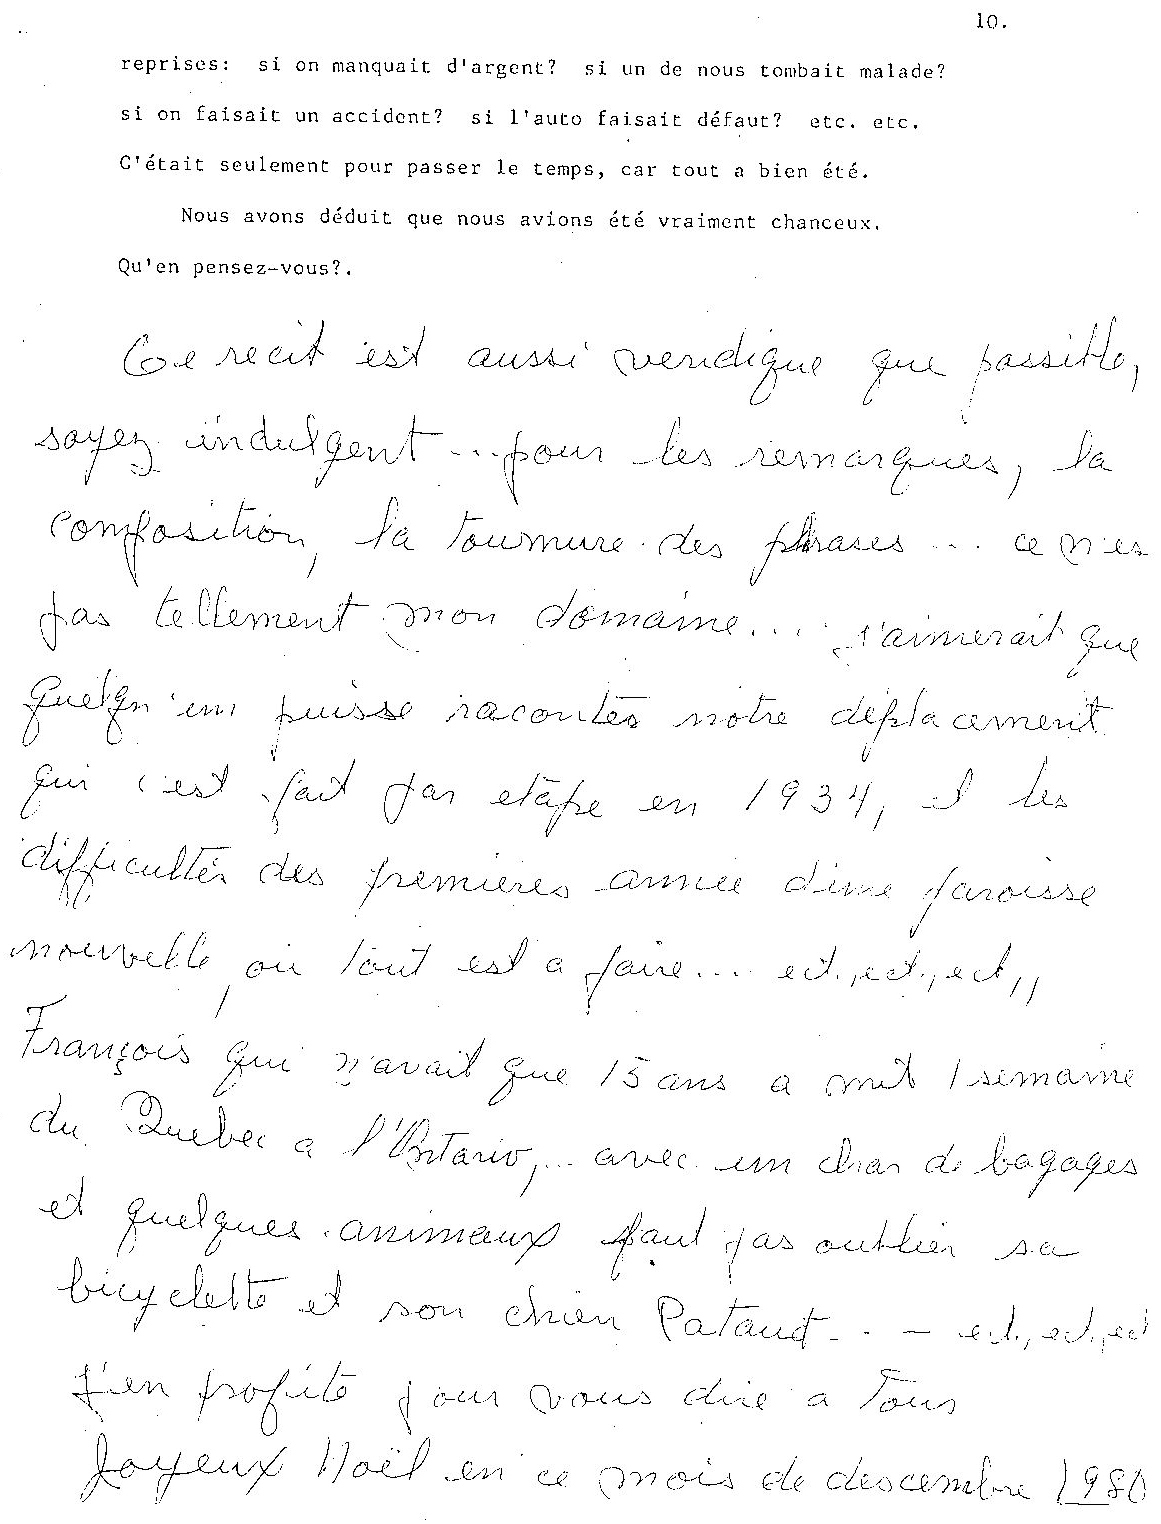 10.
reprises: si on manquait d'argent? si un de nous tombait malade?
si on faisait un accident? si l'auto faisait défaut? etc. etc.
C'était seulement pour passer le temps, car tout a bien été.
Nous avons déduit que nous avions été vraiment chanceux.
Qu'en pensez-vous?.
Ce recit est aussi veridique que possible,
soyez indulgent... pour les remarques, la
composition, la tournure des phrases... ce n'es
pas tellement mon domaine... j'aimerait que
quelqu'un puisse racontés notre déplacement
qui c'est fait par etape en 1934, et les
difficultés des premières année d'une paroisse
nouvelle, où tout est a faire... ect., ect., ect,,
François qui n'avait que 15 ans a mit 1 semaine
du Quebec a l'Ontario,... avec un char de bagages
et quelques animaux faut pas oublier sa
bicyclette et son chien Pataud... - ect., ect., ect
J'en profite pour vous dire a Tous
Joyeux Noël en ce mois de descembre 1980